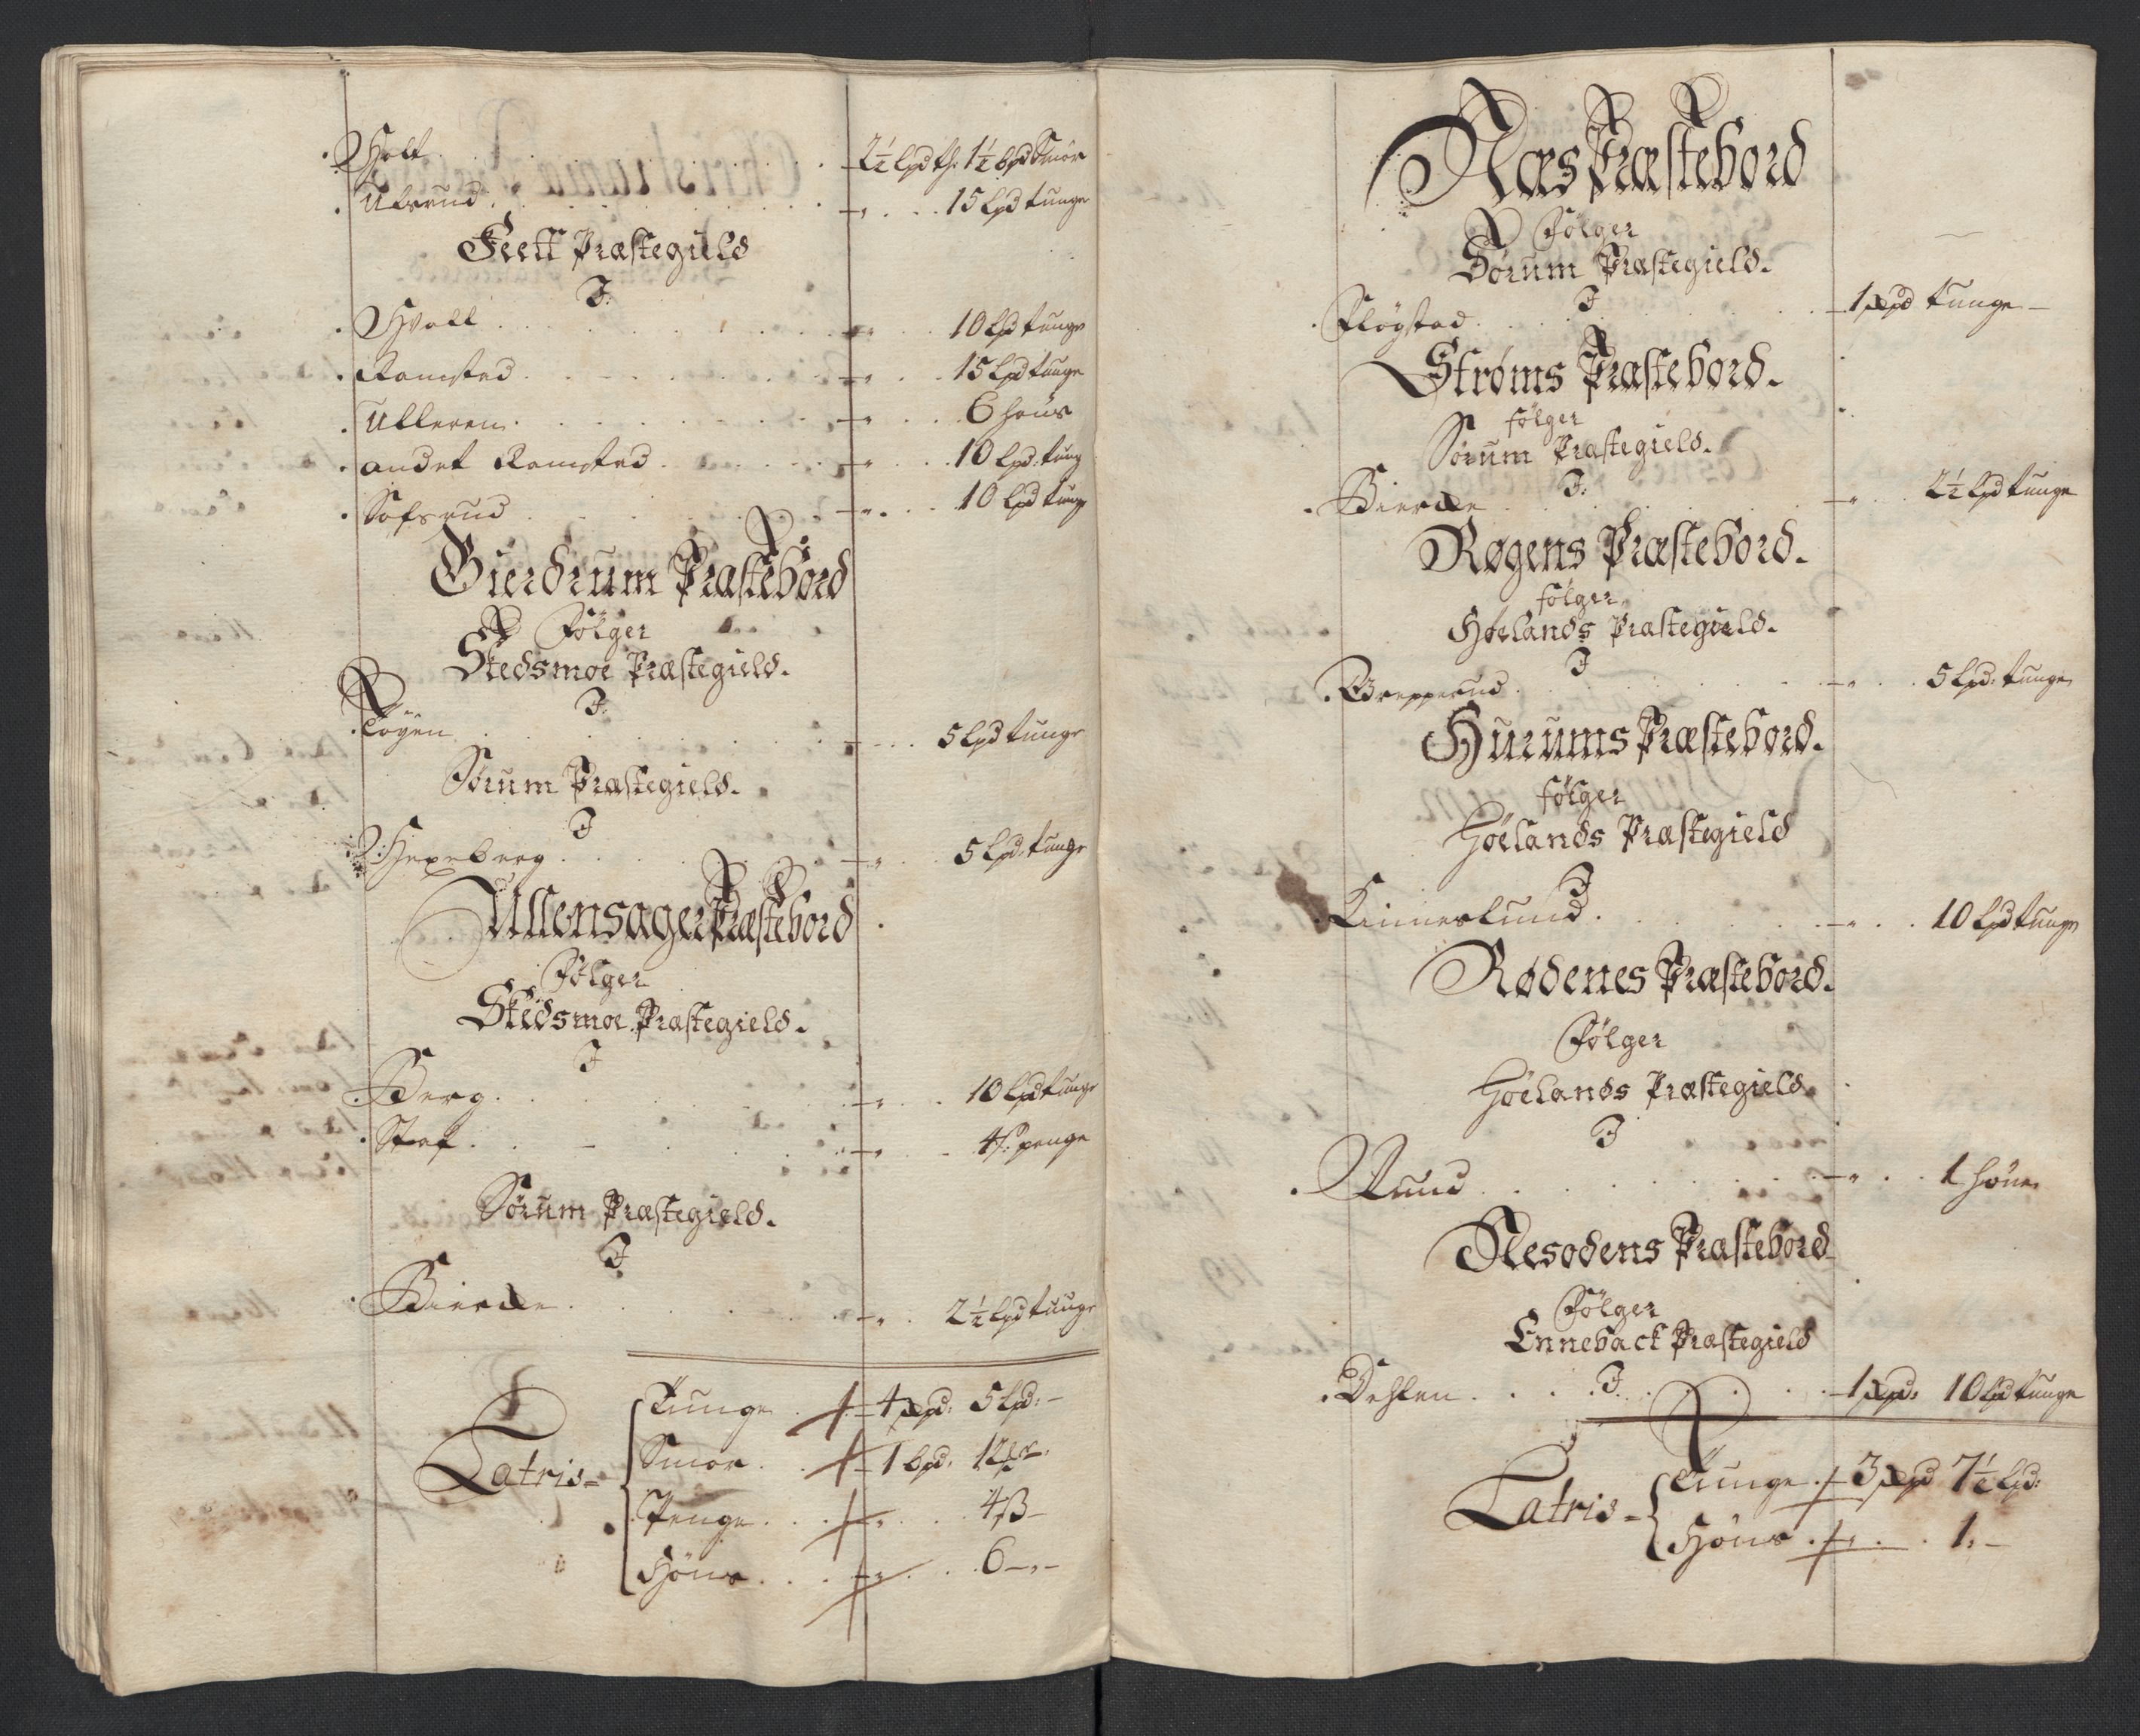 Holt . . . 2½ lpd th: 1½ bpd Smör
Ulsrud . . . 15 lpd tunge
Feett Præstegield
J:
Hvall . . . 10 lpd tunge
Ramstad . . . 15 lpd tunge
Ulleren . . . 6 höns
andet Ramsted . . . 10 lpd: tung
Sofsrud . . . 10 lpd tunge
Gierdrum Præstebord
Fölger
Skedsmoe Præstegield.
J:
Töyen . . . 5 lpd tunge
Sörum Præstegield.
J
Hexeberg . . . 5 lpd: tunge
Ullensager Præstebord
Fölger
Skedsmoe Præstegield.
J
Berg . . . 10 lpd tunge
Staf . . . 4 s: penge
Sörum Præstegield.
J
Bierche . . . 2½ lpd tunge
Latris = Tunge . 4 xpd: 5 lpd: –
Smör . . 1 bpd: 12
Penge . . . 4 ß –
Höns . . . 6 – „ –
Næs Præstebord
Fölger
Sörum Præstegield.
J
Flögstad . . . 1 xpd tunge –
Strøms Præstebord.
fölger
Sørum Præstegield.
J:
Bierche . . . 2½ lpd tunge
Røgens Præstebord.
fölger
Høelands Præstegield.
J
Grepperud . . . 5 lpd: tunge
Hurums Præstebord.
fölger
Höelands Præstegield
J
Kinnestund . . . 10 lpd tunge
Rødenes Præstebord.
Følger
Höelands Præstegield.
J
Ruud . . . 1 höne
Nesodens Præstebord
Fölger
Enneback Præstegield
J
Dehlen . . . 1 xpd: 10 lpd tunge
Latris = Tunge . 3 xpd 7½ lpd:
Höns . . . 1 „ –